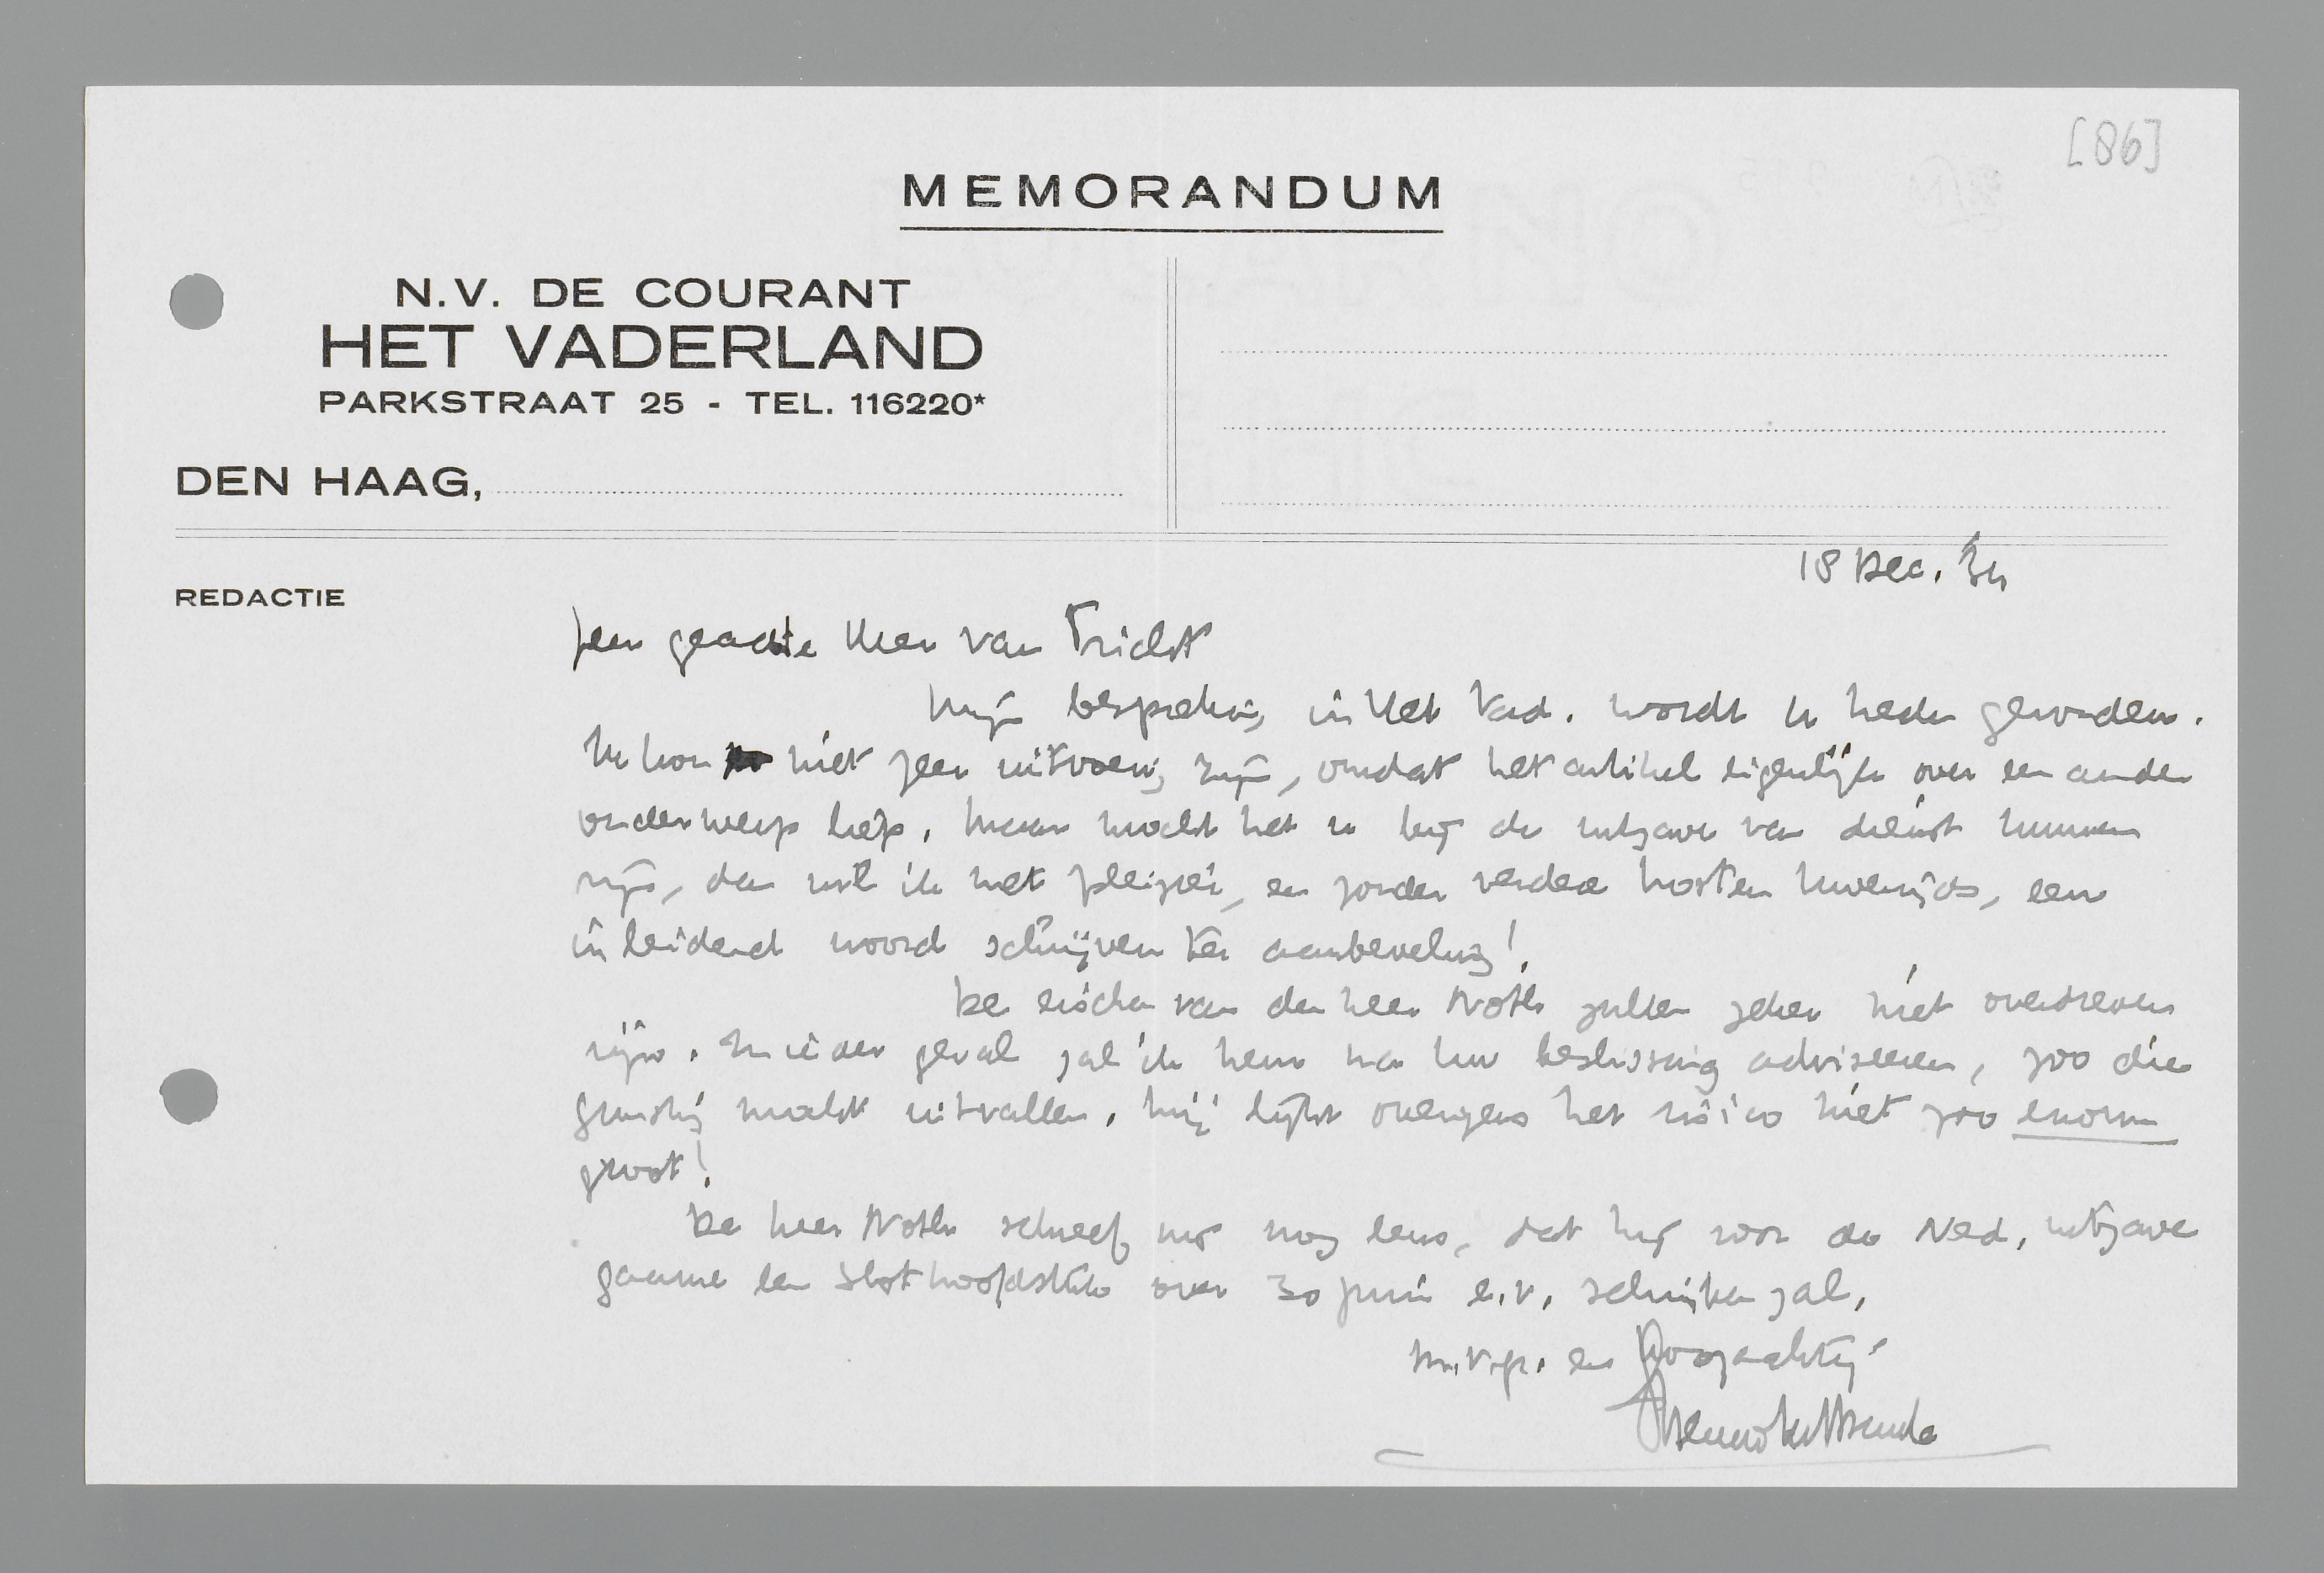 [86]
MEMORANDUM
N.V. DE COURANT
HET VADERLAND
PARKSTRAAT 25 - TEL. 116220*
DEN HAAG,
18 Dec. '34
REDACTIE
Zeer geachte Heer van Tricht
Mijn bespreking in Het Vad. wordt u heden gezonden.
Ik kon niet zeer uitvoerig zijn, omdat het artikel eigenlijk over een ander
onderwerp liep. Maar mocht het u bij de uitgave van dienst kunnen
zijn, dan wil ik met pleizier, en zonder verdere kosten Uwerzijds, een
inleidend woord schrijven ter aanbeveling!
De eischen van den heer Noth zullen zeker niet overdreven
zijn. In ieder geval zal ik hem na Uw beslissing adviseeren, zoo die
gunstig mocht uitvallen. Mij lijkt overigens het risico niet zoo enorm
groot!
De heer Noth schreef mij nog eens, dat hij voor de Ned. uitgave
gaarne een slothoofdstuk over 30 Juni e.v. schrijven zal.
m.v.gr. en Hoogachting
Menno ter Braak